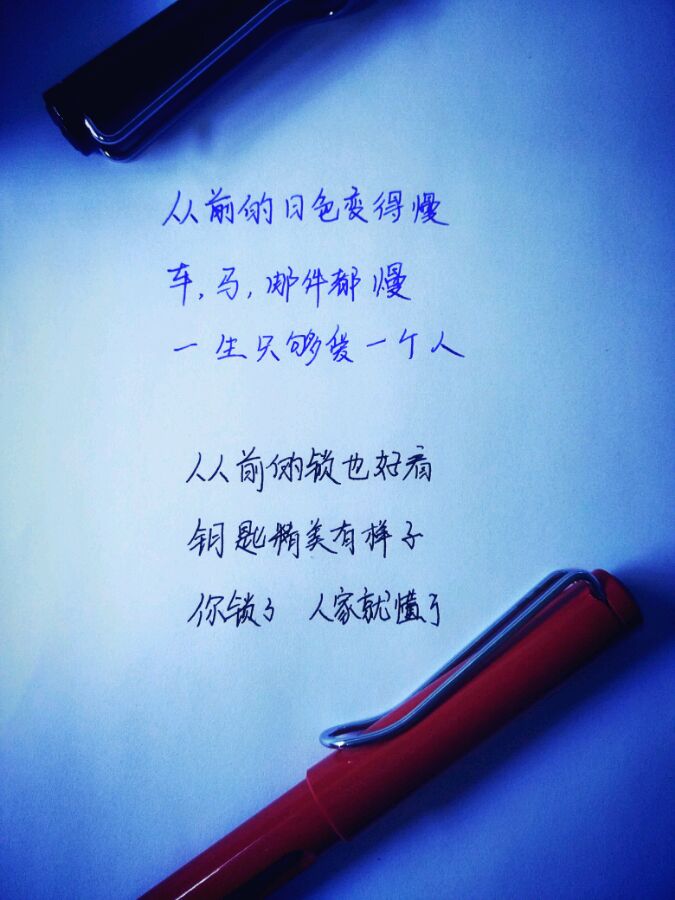 从前的日色变得慢
车,马,邮件都慢
一生只够爱一个人
从前的锁也好看
钥匙精美有样子
你锁了 人家就懂了